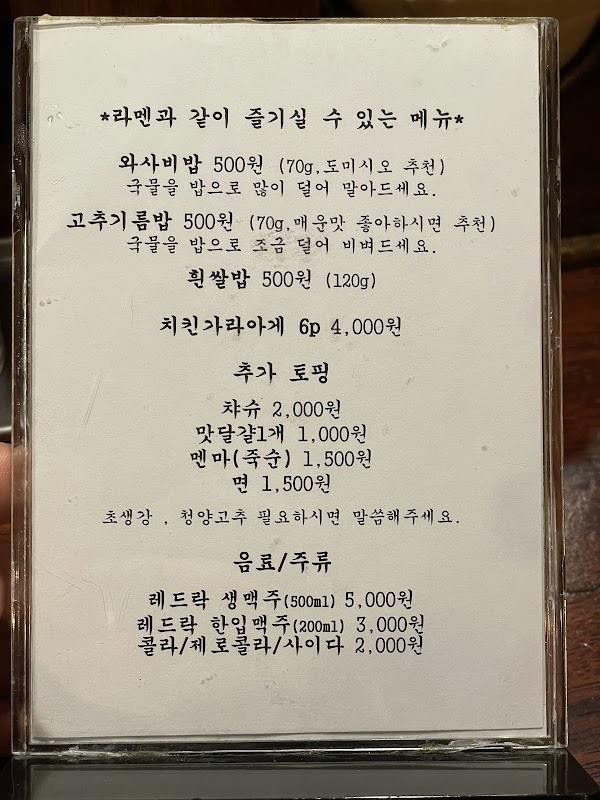 *라멘과 같이 즐기실 수 있는 메뉴*
와사비밥 500원 (70g,도미시오 추천)
국물을 밥으로 많이 덜어 말아드세요.
고추기름밥 500원 (70g,매운맛 좋아하시면 추천)
국물을 밥으로 조금 덜어 비벼드세요.
흰쌀밥 500원 (120g)
치킨가라아게 6p 4,000원
추가 토핑
챠슈 2,000원
맛달걀1개 1,000원
멘마(죽순) 1,500원
면 1,500원
초생강 , 청양고추 필요하시면 말씀해주세요.
음료/주류
레드락 생맥주(500ml) 5,000원
레드락 한입맥주(200ml) 3,000원
콜라/제로콜라/사이다 2,000원